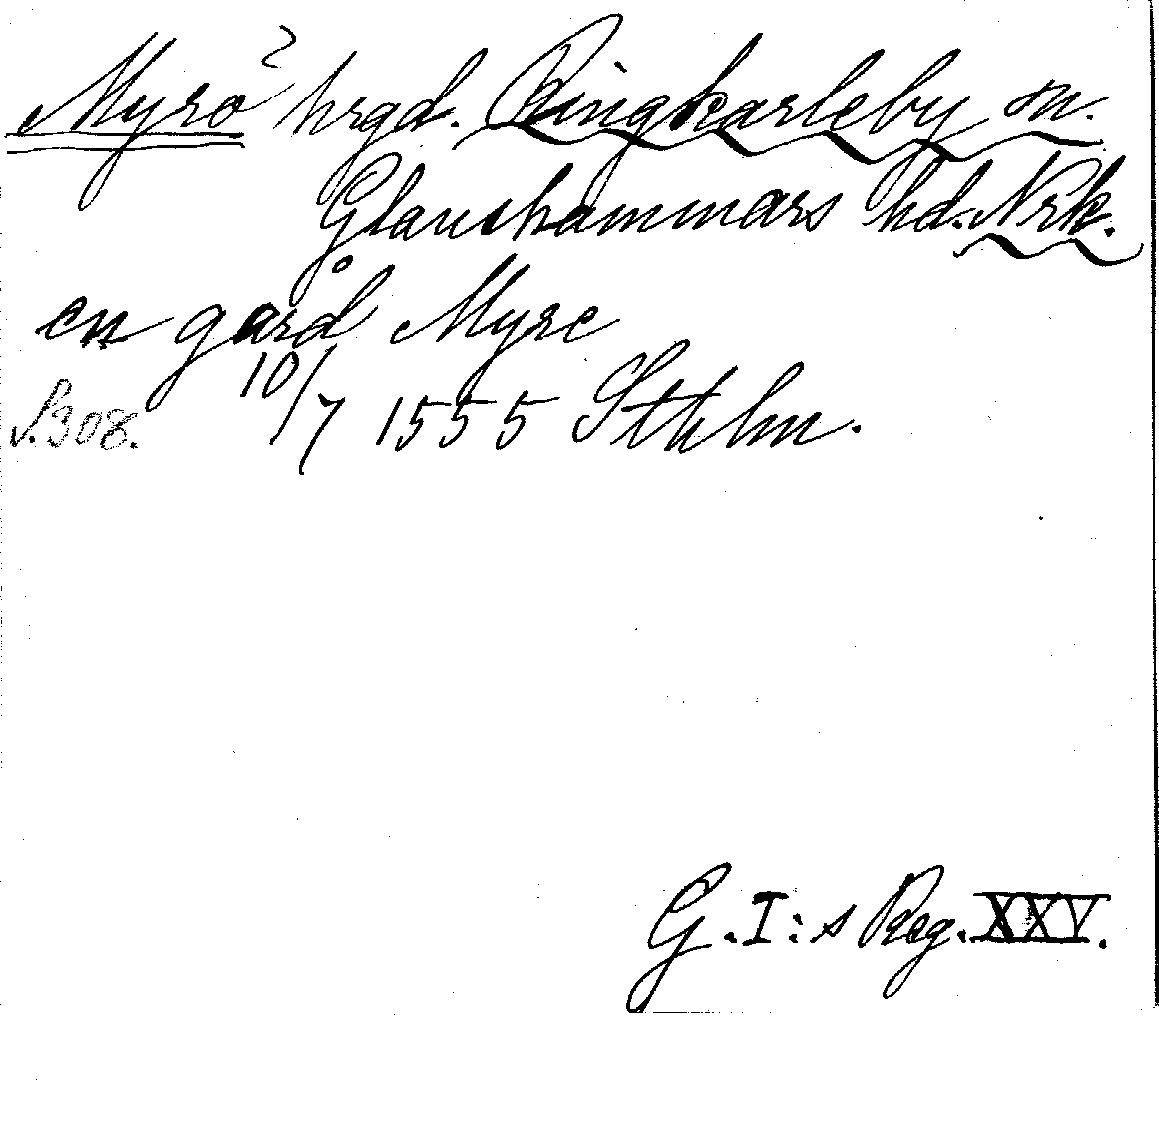 Myrö? hrgd. Ringkarleby sn.
Glanshammars hd. Nrk.
en gård Myre
S.308. 10/7 1555 Sthlm.
G.I:s Reg. XXV.